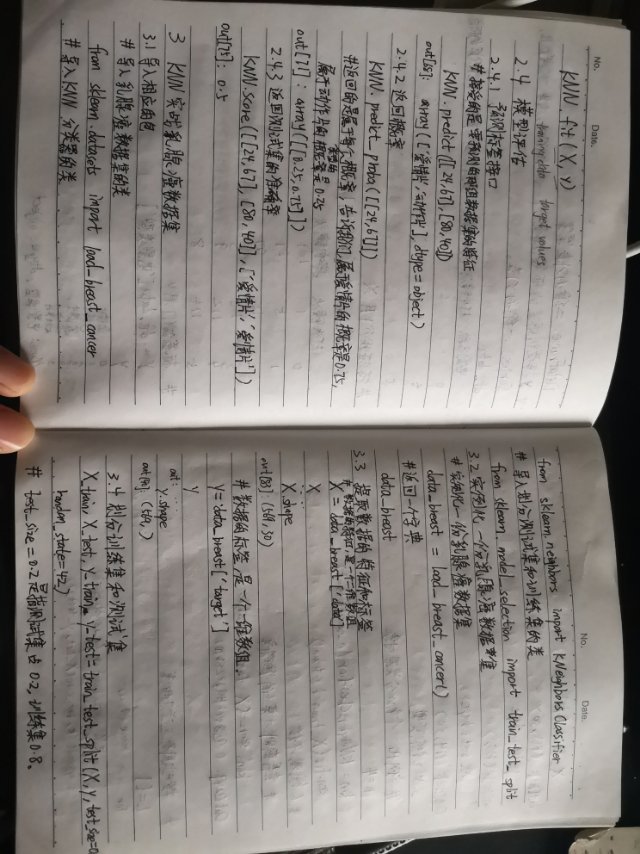 No.
Date.
KNN.fit(X, y)
training data target values
2.4 模型评估
2.4.1 预测标签接口
#接受的是要预测的那组数据集的特征
KNN.predict([[24,67],[80,40]])
out[65]: array(['爱情片','动作片'], dtype=object)
2.4.2 返回概率
KNN.predict_proba([[24,67]])
#返回的是属于每个概率,告诉我们,属于爱情片的概率是0.75,
属于动作片的概率是0.25
out[71]: array([[0.25,0.75]])
2.4.3 返回测试集的准确率
KNN.score([[24,67],[80,40]],['爱情片','爱情片'])
out[75]: 0.5
3 KNN实战乳腺癌数据集
3.1 导入相应的包
#导入乳腺癌数据集的类
from sklearn.datasets import load_breast_cancer
#导入KNN分类器的类
No.
Date.
from sklearn.neighbors import KNeighborsClassifier
#导入划分测试集和训练集的类
from sklearn.model_selection import train_test_split
3.2 实例化一份乳腺癌数据集
#实例化一份乳腺癌数据集
data_breast = load_breast_cancer()
#返回一个字典
data_breast
3.3 提取数据的特征和标签
#数据的特征,是一个二维数组
X = data_breast['data']
X
X.shape
out[83]: (569,30)
#数据的标签,是一个一维数组
y = data_breast['target']
y
out: ...
y.shape
out[94]: (569,)
3.4 划分训练集和测试集
X_train, X_test, y_train, y_test = train_test_split(X, y, test_size=0
random_state=42)
# test_size=0.2是指测试集占0.2,训练集0.8。